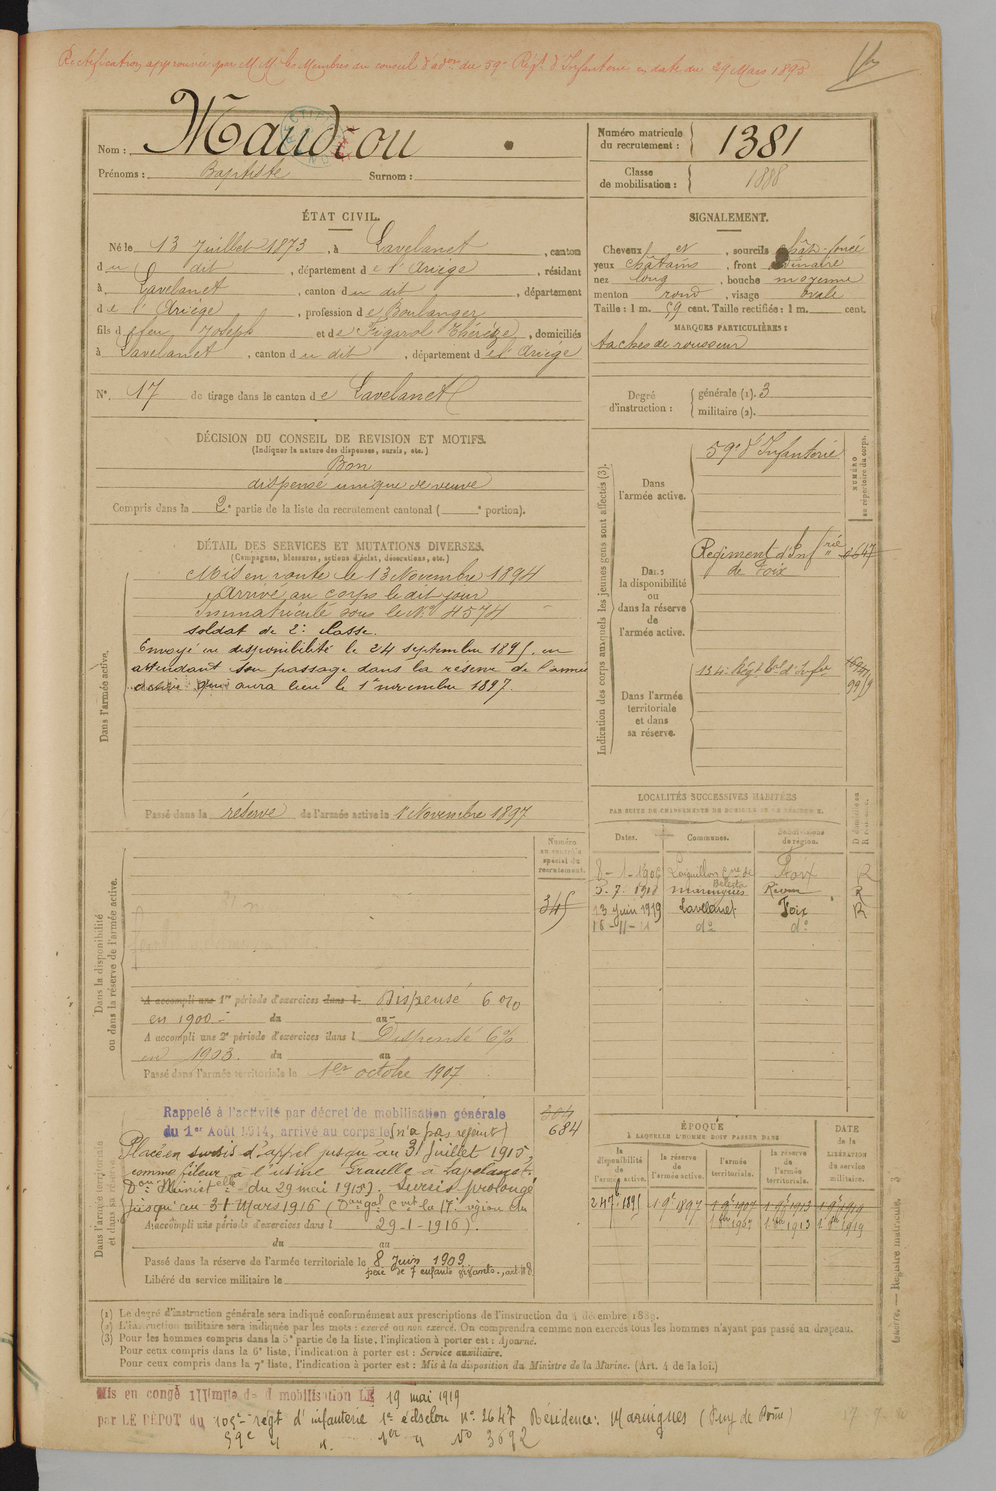 Rectification approuvée par MM. les Membres du conseil d'adon du 59e Régt d'Infanterie en date du 29 Mars 1895
Nom : Maudiou
Prénoms : Baptiste Surnom :
Numéro matricule du recrutement : 1381
Classe de mobilisation : 1888
ÉTAT CIVIL.
Né le 13 Juillet 1873, à Lavelanet, canton
du dit, département de l'Ariège, résidant
à Lavelanet, canton du dit, département
de l'Ariège, profession de Boulanger
fils de feu Joseph et de Figarol Thérèze, domiciliés
à Lavelanet, canton du dit, département de l'Ariège
N° 17 de tirage dans le canton de Lavelanet
SIGNALEMENT.
Cheveux et, sourcils chât-foncé
yeux châtains, front ordinaire
nez long, bouche moyenne
menton rond, visage ovale
Taille : 1 m. 59 cent. Taille rectifiée : 1 m. cent.
MARQUES PARTICULIÈRES :
taches de rousseur
Degré d'instruction : générale (1). 3
militaire (2).
DÉCISION DU CONSEIL DE REVISION ET MOTIFS.
(Indiquer la nature des dispenses, sursis, etc.)
Bon
dispensé unique de veuve
Compris dans la 2e partie de la liste du recrutement cantonal ( e portion).
DÉTAIL DES SERVICES ET MUTATIONS DIVERSES.
(Campagnes, blessures, actions d'éclat, décorations, etc.)
Dans l'armée active.
Mis en route le 13 Novembre 1894
Arrivé au corps le dit jour
Immatriculé sous le No 4574
soldat de 2e classe.
Envoyé en disponibilité le 24 septembre 1895, en
attendant son passage dans la réserve de l'armée
active qui aura lieu le 1er novembre 1897.
Passé dans la réserve de l'armée active le 1er Novembre 1897
Indication des corps auxquels les jeunes gens sont affectés (3).
NUMÉRO au répertoire du corps.
Dans l'armée active.
59e d'Infanterie
Dans la disponibilité ou dans la réserve de l'armée active.
Régiment d'Infrie de Foix
Dans l'armée territoriale et dans sa réserve.
134e Régt tal d'Infie
LOCALITÉS SUCCESSIVES HABITÉES
PAR SUITE DE CHANGEMENTS DE DOMICILE OU DE RÉSIDENCE.
Dates. Communes. Subdivisions de région.
8-1-1906 L'aiguillon Cne de Bélesta Foix R
5.7.1918 Maringues Riom R
13 Juin 1919 Lavelanet Foix R
do do
Dans la disponibilité ou dans la réserve de l'armée active.
Numéro au contrôle spécial du recrutement.
345
A accompli une 1re période d'exercices dans l Dispensé 6%
en 1900 du au
A accompli une 2e période d'exercices dans l Dispensé 6%
en 1903. du au
Passé dans l'armée territoriale le 1er octobre 1907
Dans l'armée territoriale et dans sa réserve.
Rappelé à l'activité par décret de mobilisation générale
du 1er Août 1914, arrivé au corps le (n'a pas rejoint)
684
Placé en sursis d'appel jusqu'au 31 Juillet 1915,
comme fileur à l'usine Fraulle à Lavelanet.
Don Ministelle du 29 mai 1915). Sursis prolongé
jusqu'au 31 Mars 1916 (
A accompli une période d'exercices dans l 29-1-1916).
du au
Passé dans la réserve de l'armée territoriale le 8 Juin 1909
père de 7 enfants vivants, art 48
Libéré du service militaire le
ÉPOQUE
À LAQUELLE L'HOMME DOIT PASSER DANS
la disponibilité de l'armée active. la réserve de l'armée active. l'armée territoriale. la réserve de l'armée territoriale.
DATE de la LIBÉRATION du service militaire.
24 7bre 1895 1 9e 1897 1 9e 1907 1 9e 1913 1 9e 1919
1 8bre 1907 1 8bre 1913 1 8bre 1919
(1) Le degré d'instruction générale sera indiqué conformément aux prescriptions de l'instruction du 4 décembre 1889.
(2) L'instruction militaire sera indiquée par les mots : exercé ou non exercé. On comprendra comme non exercés tous les hommes n'ayant pas passé au drapeau.
(3) Pour les hommes compris dans la 5e partie de la liste, l'indication à porter est : Ajourné.
Pour ceux compris dans la 6e liste, l'indication à porter est : Service auxiliaire.
Pour ceux compris dans la 7e liste, l'indication à porter est : Mis à la disposition du Ministre de la Marine. (Art. 4 de la loi.)
Mis en congé illimité de démobilisation LE 19 mai 1919
par LE DÉPOT du 105e régt d'infanterie 1er échelon no 2647 Résidence : Maringues (Puy de Dôme)
59e " " 1er " No 3692